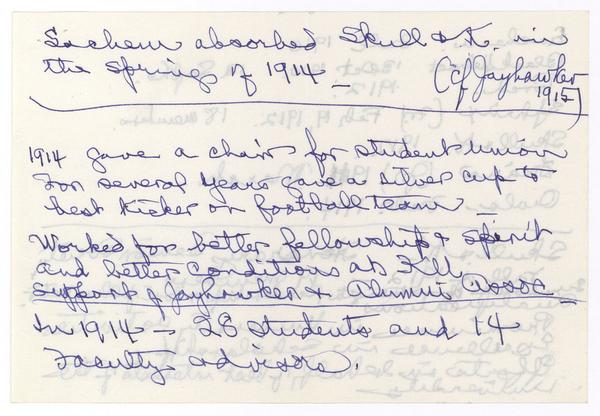 Sachem absorbed Skull & K. in
the spring of 1914 — (cf Jayhawker
1915)
1914 gave a chair for student union
For several years gave a silver cup to
best kicker on football team —
Worked for better fellowship & spirit
and better conditions at K.U.
support of Jayhawker & Alumni Assoc —
In 1914 — 28 students and 14
Faculty advisors.